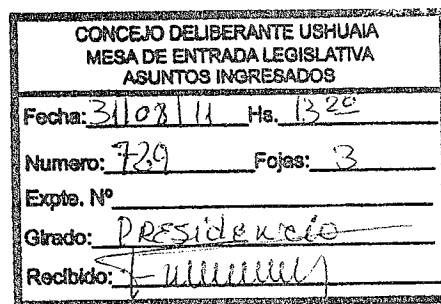 CONCEJO DELIBERANTE USHUAIA
MESA DE ENTRADA LEGISLATIVA
ASUNTOS INGRESADOS
Fecha: 31/08/11 Hs. 13 20
Numero: 729 Fojas: 3
Expte. Nº
Girado: Presidencia
Recibido: